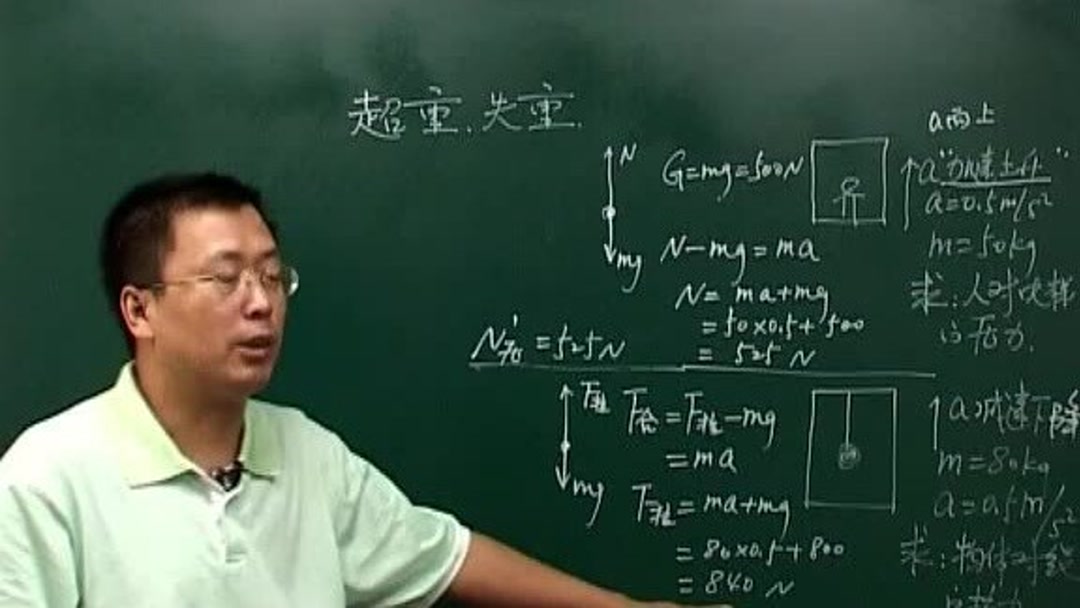 超重、失重.
a向上
N
G=mg=500N
a "加速上升"
a=0.5m/s²
mg
N-mg=ma
m=50kg
N=ma+mg
求:人对吊
=50×0.5+500
的压力.
=525N
N'=525N
F拉
F合=F拉-mg
a 减速下降
=ma
m=80kg
mg
F拉=ma+mg
a=0.5m/s²
=80×0.5+800
求:物体对
=840N